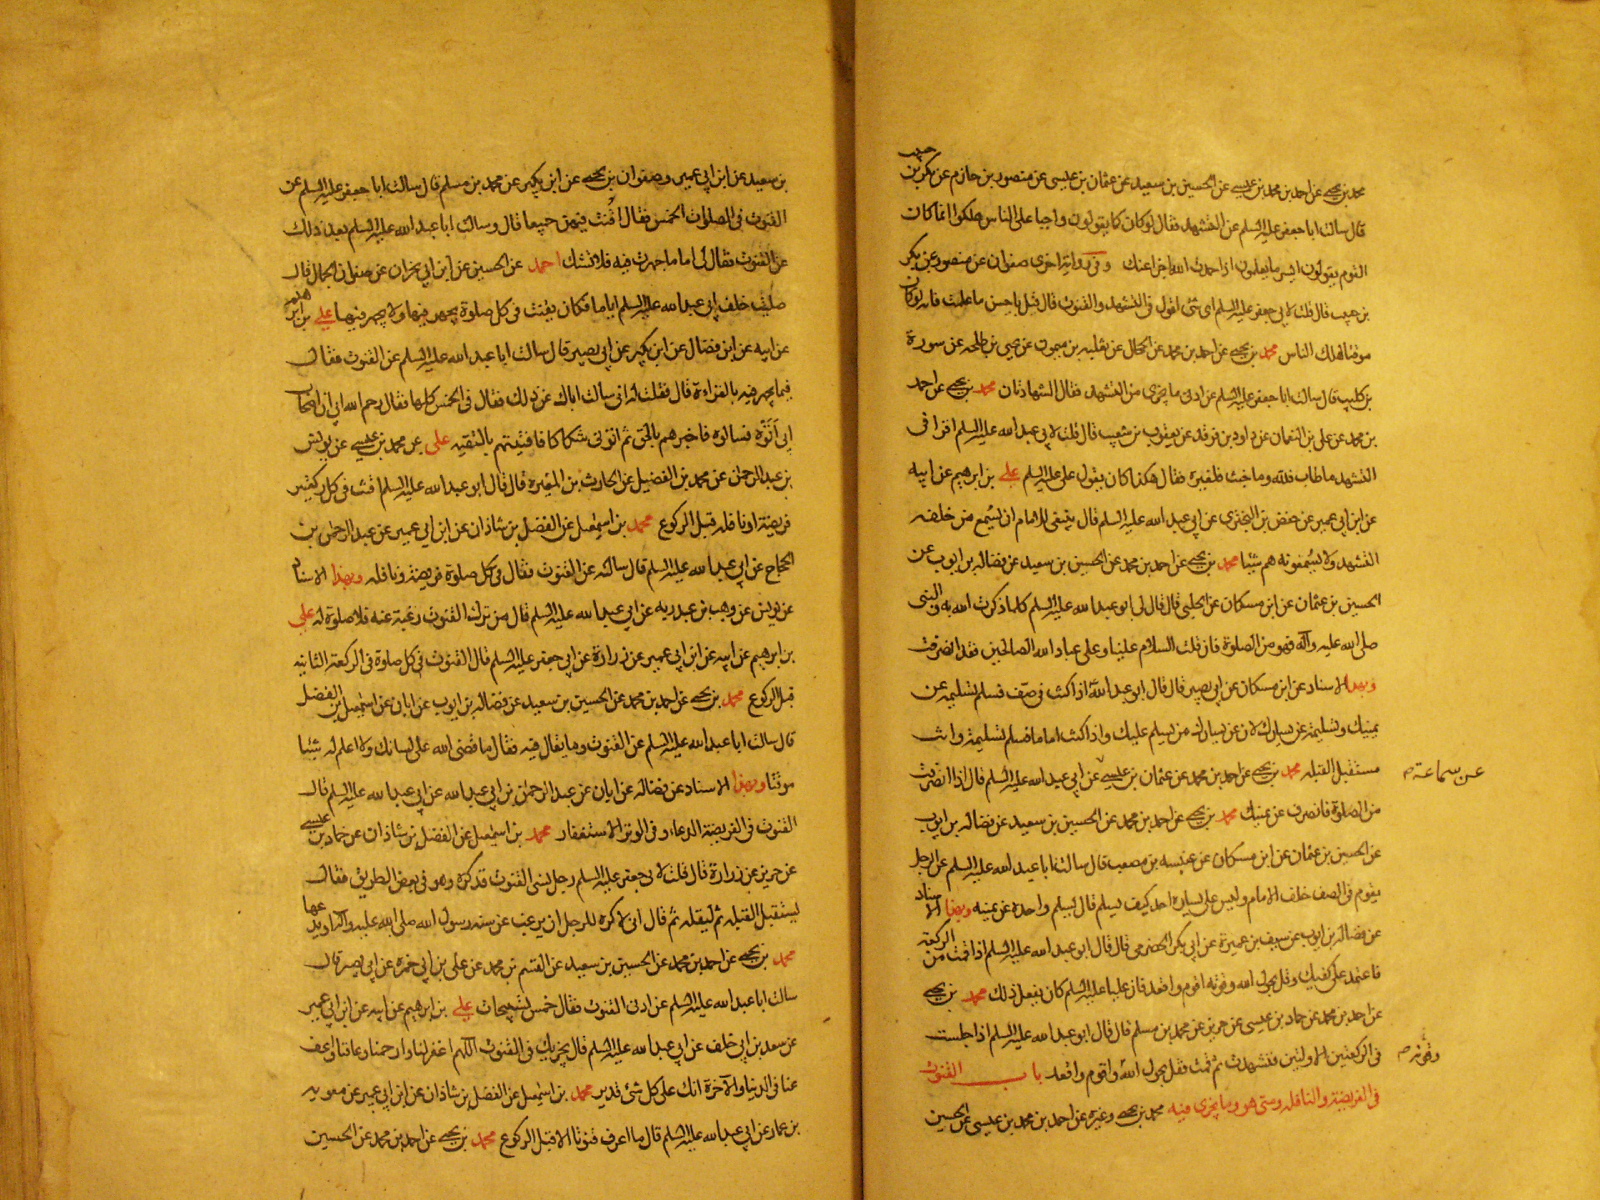 محمد بن يحيى عن احمد بن محمد بن عيسى عن الحسين بن سعيد عن عثمان بن عيسى عن منصور بن حازم عن بكر بن حبيب
قال سالت ابا جعفر عليه السلم عن التشهد فقال لو كان كما يقولون واجبا على الناس هلكوا انما كان
القوم يقولون ايسر ما يعلمون اذا حمدت الله اجزا عنك وفى رواية اخرى صفوان عن منصور عن بكر
بن حبيب قال قلت لابى جعفر عليه السلم اى شئ اقول فى التشهد والقنوت قال قل باحسن ما علمت فانه لو كان
موقتا لهلك الناس محمد بن يحيى عن احمد بن محمد عن الحجال عن ثعلبه بن ميمون عن يحيى بن طلحه عن سورة
بن كليب قال سالت ابا جعفر عليه السلم عن ادنى ما يجزى من التشهد فقال الشهادتان محمد بن يحيى عن احمد
بن محمد عن على بن النعمان عن داود بن فرقد عن يعقوب بن شعيب قال قلت لابى عبد الله عليه السلم اقرا فى
التشهد ما طاب فلله وما خبث فلغيره فقال هكذا كان يقول على عليه السلم على بن ابرهيم عن ابيه
عن ابن ابى عمير عن حفص بن البخترى عن ابى عبد الله عليه السلم قال ينبغى للامام ان يسمع من خلفه
التشهد ولا يسمعونه هم شيئا محمد بن يحيى عن احمد بن محمد عن الحسين بن سعيد عن فضاله بن ايوب عن
الحسين بن عثمان عن ابن مسكان عن الحلبى قال قال لى ابو عبد الله عليه السلم كلما ذكرت الله به والنبى
صلى الله عليه وآله فهو من الصلوة فان قلت السلام علينا وعلى عباد الله الصالحين فقد انصرفت
وبهذا الاسناد عن ابن مسكان عن ابى بصير قال قال ابو عبد الله اذا كنت فى صف فسلم تسليمة عن
يمينك وتسليمة عن يسارك لان عن يسارك من يسلم عليك واذا كنت اماما فسلم تسليمة وانت
مستقبل القبله محمد بن يحيى عن احمد بن محمد عن عثمان بن عيسى عن ابى عبد الله عليه السلم قال اذا انصرفت
عن سماعة
من الصلوة فانصرف عن يمينك محمد بن يحيى عن احمد بن محمد عن الحسين بن سعيد عن فضاله بن ايوب
عن الحسين بن عثمان عن ابن مسكان عن عنبسه بن مصعب قال سالت ابا عبد الله عليه السلم عن الرجل
يقوم فى الصف خلف الامام وليس على يساره احد كيف يسلم قال يسلم واحدة عن يمينه وبهذا الاسناد
عن فضاله بن ايوب عن سيف بن عميرة عن ابى بكر الحضرمى قال قال ابو عبد الله عليه السلم اذا قمت من الركعة
فاعتمد على كفيك وقل بحول الله وقوته اقوم واقعد فان عليا عليه السلم كان يفعل ذلك محمد بن يحيى
عن احمد بن محمد عن حماد بن عيسى عن حريز عن محمد بن مسلم قال قال ابو عبد الله عليه السلم اذا جلست
فى الركعتين الاولتين فتشهدت ثم قمت فقل بحول الله واقوم واقعد باب القنوت
وقوته
فى الفريضة والنافله ومتى هو وما يجزى فيه محمد بن يحيى وغيره عن احمد بن محمد بن عيسى عن الحسين
بن سعيد عن ابن ابى عمير وصفوان بن يحيى عن ابن بكير عن محمد بن مسلم قال سالت ابا جعفر عليه السلم عن
القنوت فى الصلوات الخمس فقال اقنت فيهن جميعا قال وسالت ابا عبد الله عليه السلم بعد ذلك
عن القنوت فقال لى اما ما جهرت فيه فلا تشك احمد عن الحسين عن ابن ابى نجران عن صفوان الجمال قال
صليت خلف ابى عبد الله عليه السلم اياما فكان يقنت فى كل صلوة يجهر فيها ولا يجهر فيها على بن ابرهيم
عن ابيه عن ابن فضال عن ابن بكير عن ابى بصير قال سالت ابا عبد الله عليه السلم عن القنوت فقال
فيما يجهر فيه بالقراءة قال فقلت له انى سالت اباك عن ذلك فقال فى الخمس كلها فقال رحم الله ابى ان اصحاب
ابى اتوه فسالوه فاخبرهم بالحق ثم اتونى شكاكا فافتيتهم بالتقيه على عن محمد بن عيسى عن يونس
بن عبد الرحمن عن محمد بن الفضيل عن الحارث بن المغيره قال قال ابو عبد الله عليه السلم اقنت فى كل ركعتين
فريضة او نافله قبل الركوع محمد بن اسمعيل عن الفضل بن شاذان عن ابن ابى عمير عن عبد الرحمن بن
الحجاج عن ابى عبد الله عليه السلم قال سالته عن القنوت فقال فى كل صلوة فريضة ونافله وبهذا الاسناد
عن يونس عن وهب بن عبد ربه عن ابى عبد الله عليه السلم قال من ترك القنوت رغبة عنه فلا صلوة له على
بن ابرهيم عن ابيه عن ابن ابى عمير عن زرارة عن ابى جعفر عليه السلم قال القنوت فى كل صلوة فى الركعة الثانيه
قبل الركوع محمد بن يحيى عن احمد بن محمد عن الحسين بن سعيد عن فضاله بن ايوب عن ابان عن اسمعيل بن الفضل
قال سالت ابا عبد الله عليه السلم عن القنوت وما يقال فيه فقال ما قضى الله على لسانك ولا اعلم له شيئا
موقتا وبهذا الاسناد عن فضاله عن ابان عن عبد الرحمن بن ابى عبد الله عن ابى عبد الله عليه السلم قال
القنوت فى الفريضة الدعاء وفى الوتر الاستغفار محمد بن اسمعيل عن الفضل بن شاذان عن حماد بن عيسى
عن حريز عن زرارة قال قلت لابى جعفر عليه السلم رجل نسى القنوت فذكره وهو فى بعض الطريق فقال
يستقبل القبله ثم ليقله ثم قال انى لاكره للرجل ان يرغب عن سنه رسول الله صلى الله عليه وآله او يدعها
محمد بن يحيى عن احمد بن محمد عن الحسين بن سعيد عن القسم بن محمد عن على بن ابى حمزه عن ابى بصير قال
سالت ابا عبد الله عليه السلم عن ادنى القنوت فقال خمس تسبيحات على بن ابرهيم عن ابيه عن ابن ابى عمير
عن سعد بن ابى خلف عن ابى عبد الله عليه السلم قال يجزيك فى القنوت اللهم اغفر لنا وارحمنا وعافنا واعف
عنا فى الدنيا والآخرة انك على كل شئ قدير محمد بن اسمعيل عن الفضل بن شاذان عن ابن ابى عمير عن معويه
بن عمار عن ابى عبد الله عليه السلم قال ما اعرف قنوتا الا قبل الركوع محمد بن يحيى عن احمد بن محمد عن الحسين